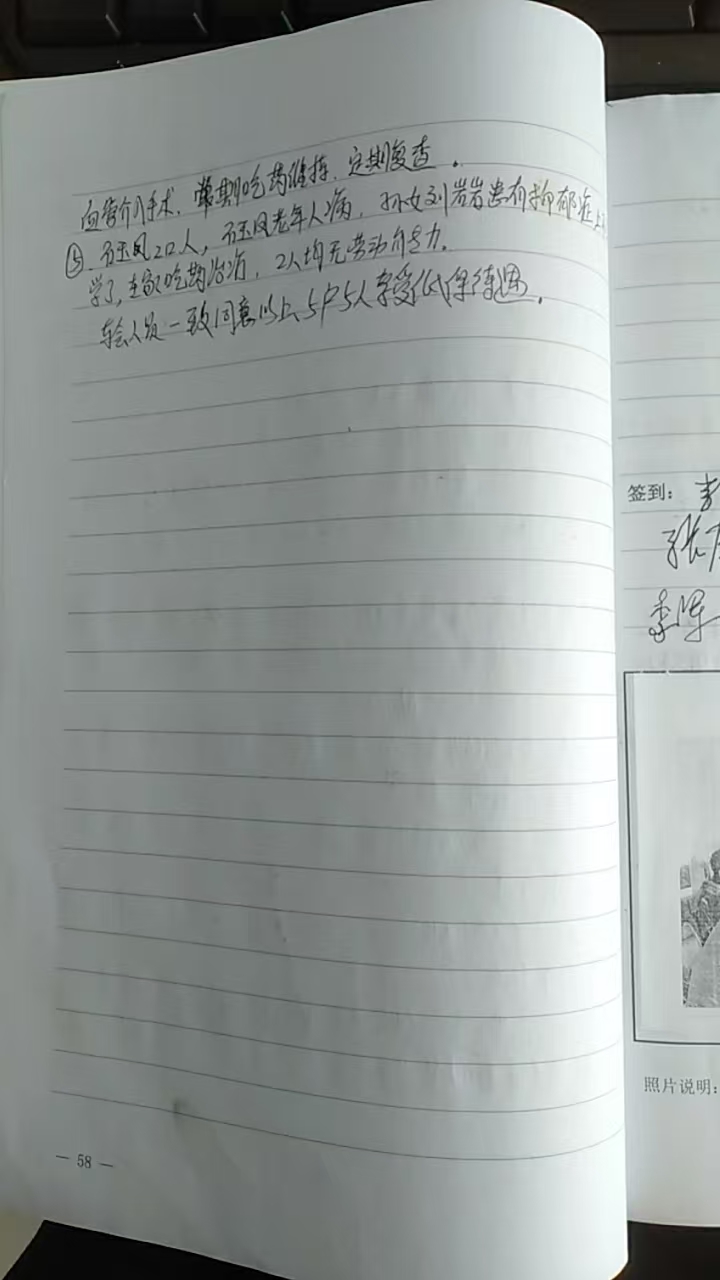 血管介入手术，常期吃药维持，定期复查。
⑤、石玉凤2口人，石玉凤老年人病，孙女刘岩岩患有抑郁症上
学了，在家吃药治病，2人均无劳动能力。
与会人员一致同意以上5户5人享受低保待遇。
签到：李
张
李军
照片说明：
— 58 —